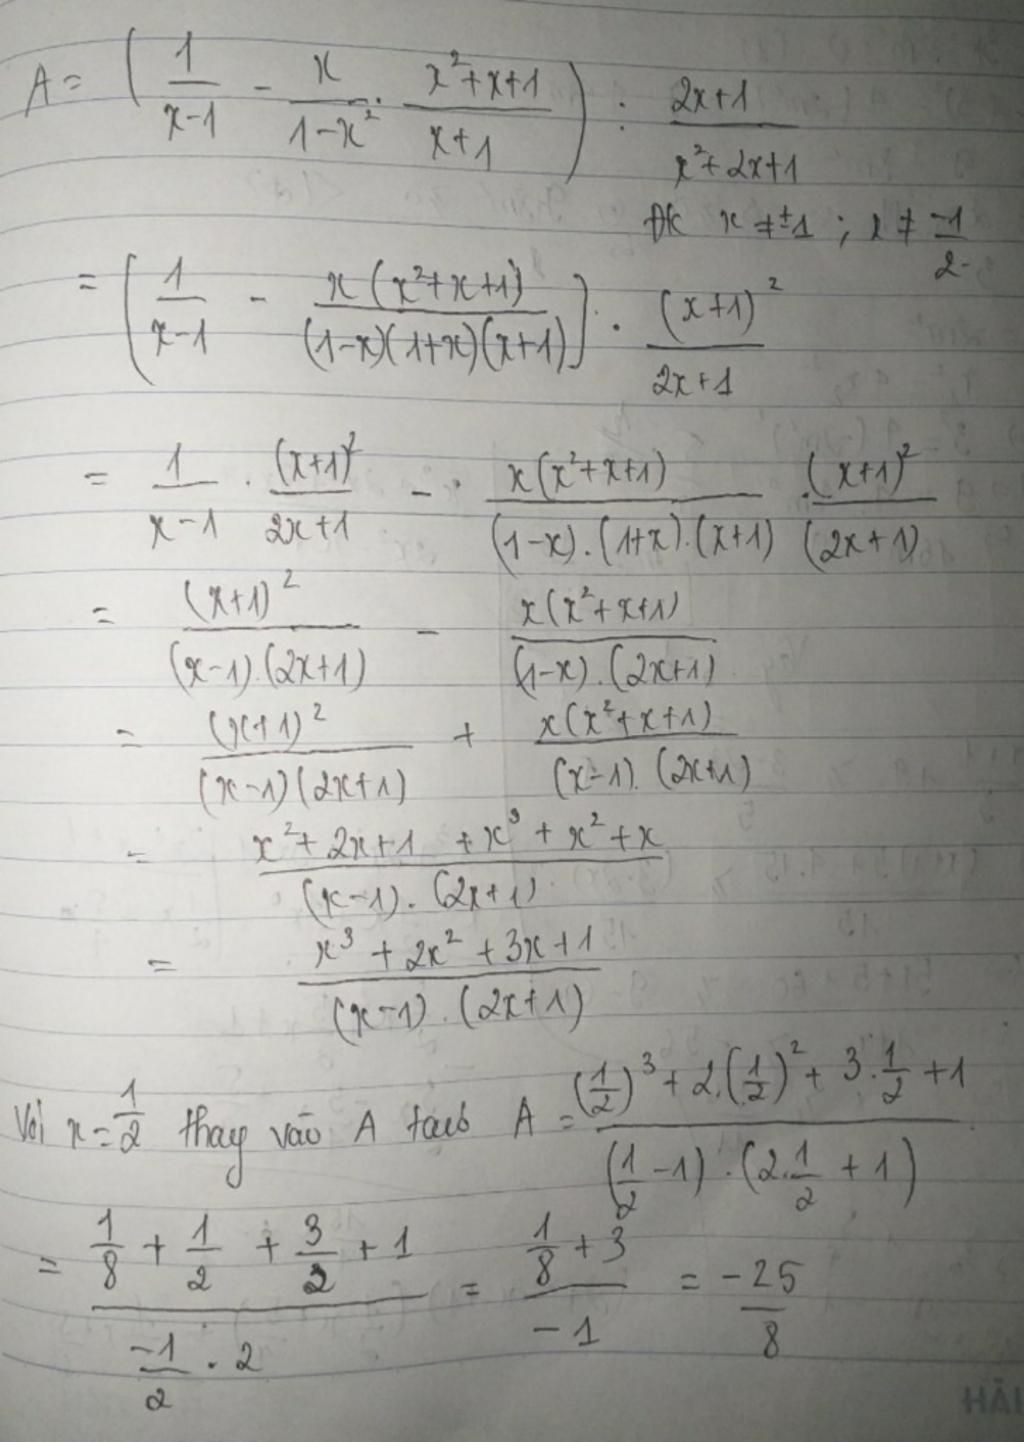 A = ( 1/(x-1) - x/(1-x²) . (x²+x+1)/(x+1) ) : (2x+1)/(x²+2x+1)
ĐK x ≠ ±1 ; x ≠ -1/2
= [ 1/(x-1) - x(x²+x+1)/((1-x)(1+x)(x+1)) ] . (x+1)²/(2x+1)
= 1/(x-1) . (x+1)²/(2x+1) - . x(x²+x+1)/((1-x).(1+x).(x+1)) . (x+1)²/(2x+1)
= (x+1)²/((x-1).(2x+1)) - x(x²+x+1)/((1-x).(2x+1))
= (x+1)²/((x-1)(2x+1)) + x(x²+x+1)/((x-1).(2x+1))
= (x²+2x+1 +x³+x²+x)/((x-1).(2x+1))
= (x³+2x²+3x+1)/((x-1).(2x+1))
Với x = 1/2 thay vào A A = ((1/2)³+2.(1/2)²+3.1/2+1)/((1/2-1).(2.1/2+1))
= (1/8+1/2+3/2+1)/(-1/2.2) = (1/8+3)/(-1) = -25/8
HẢI